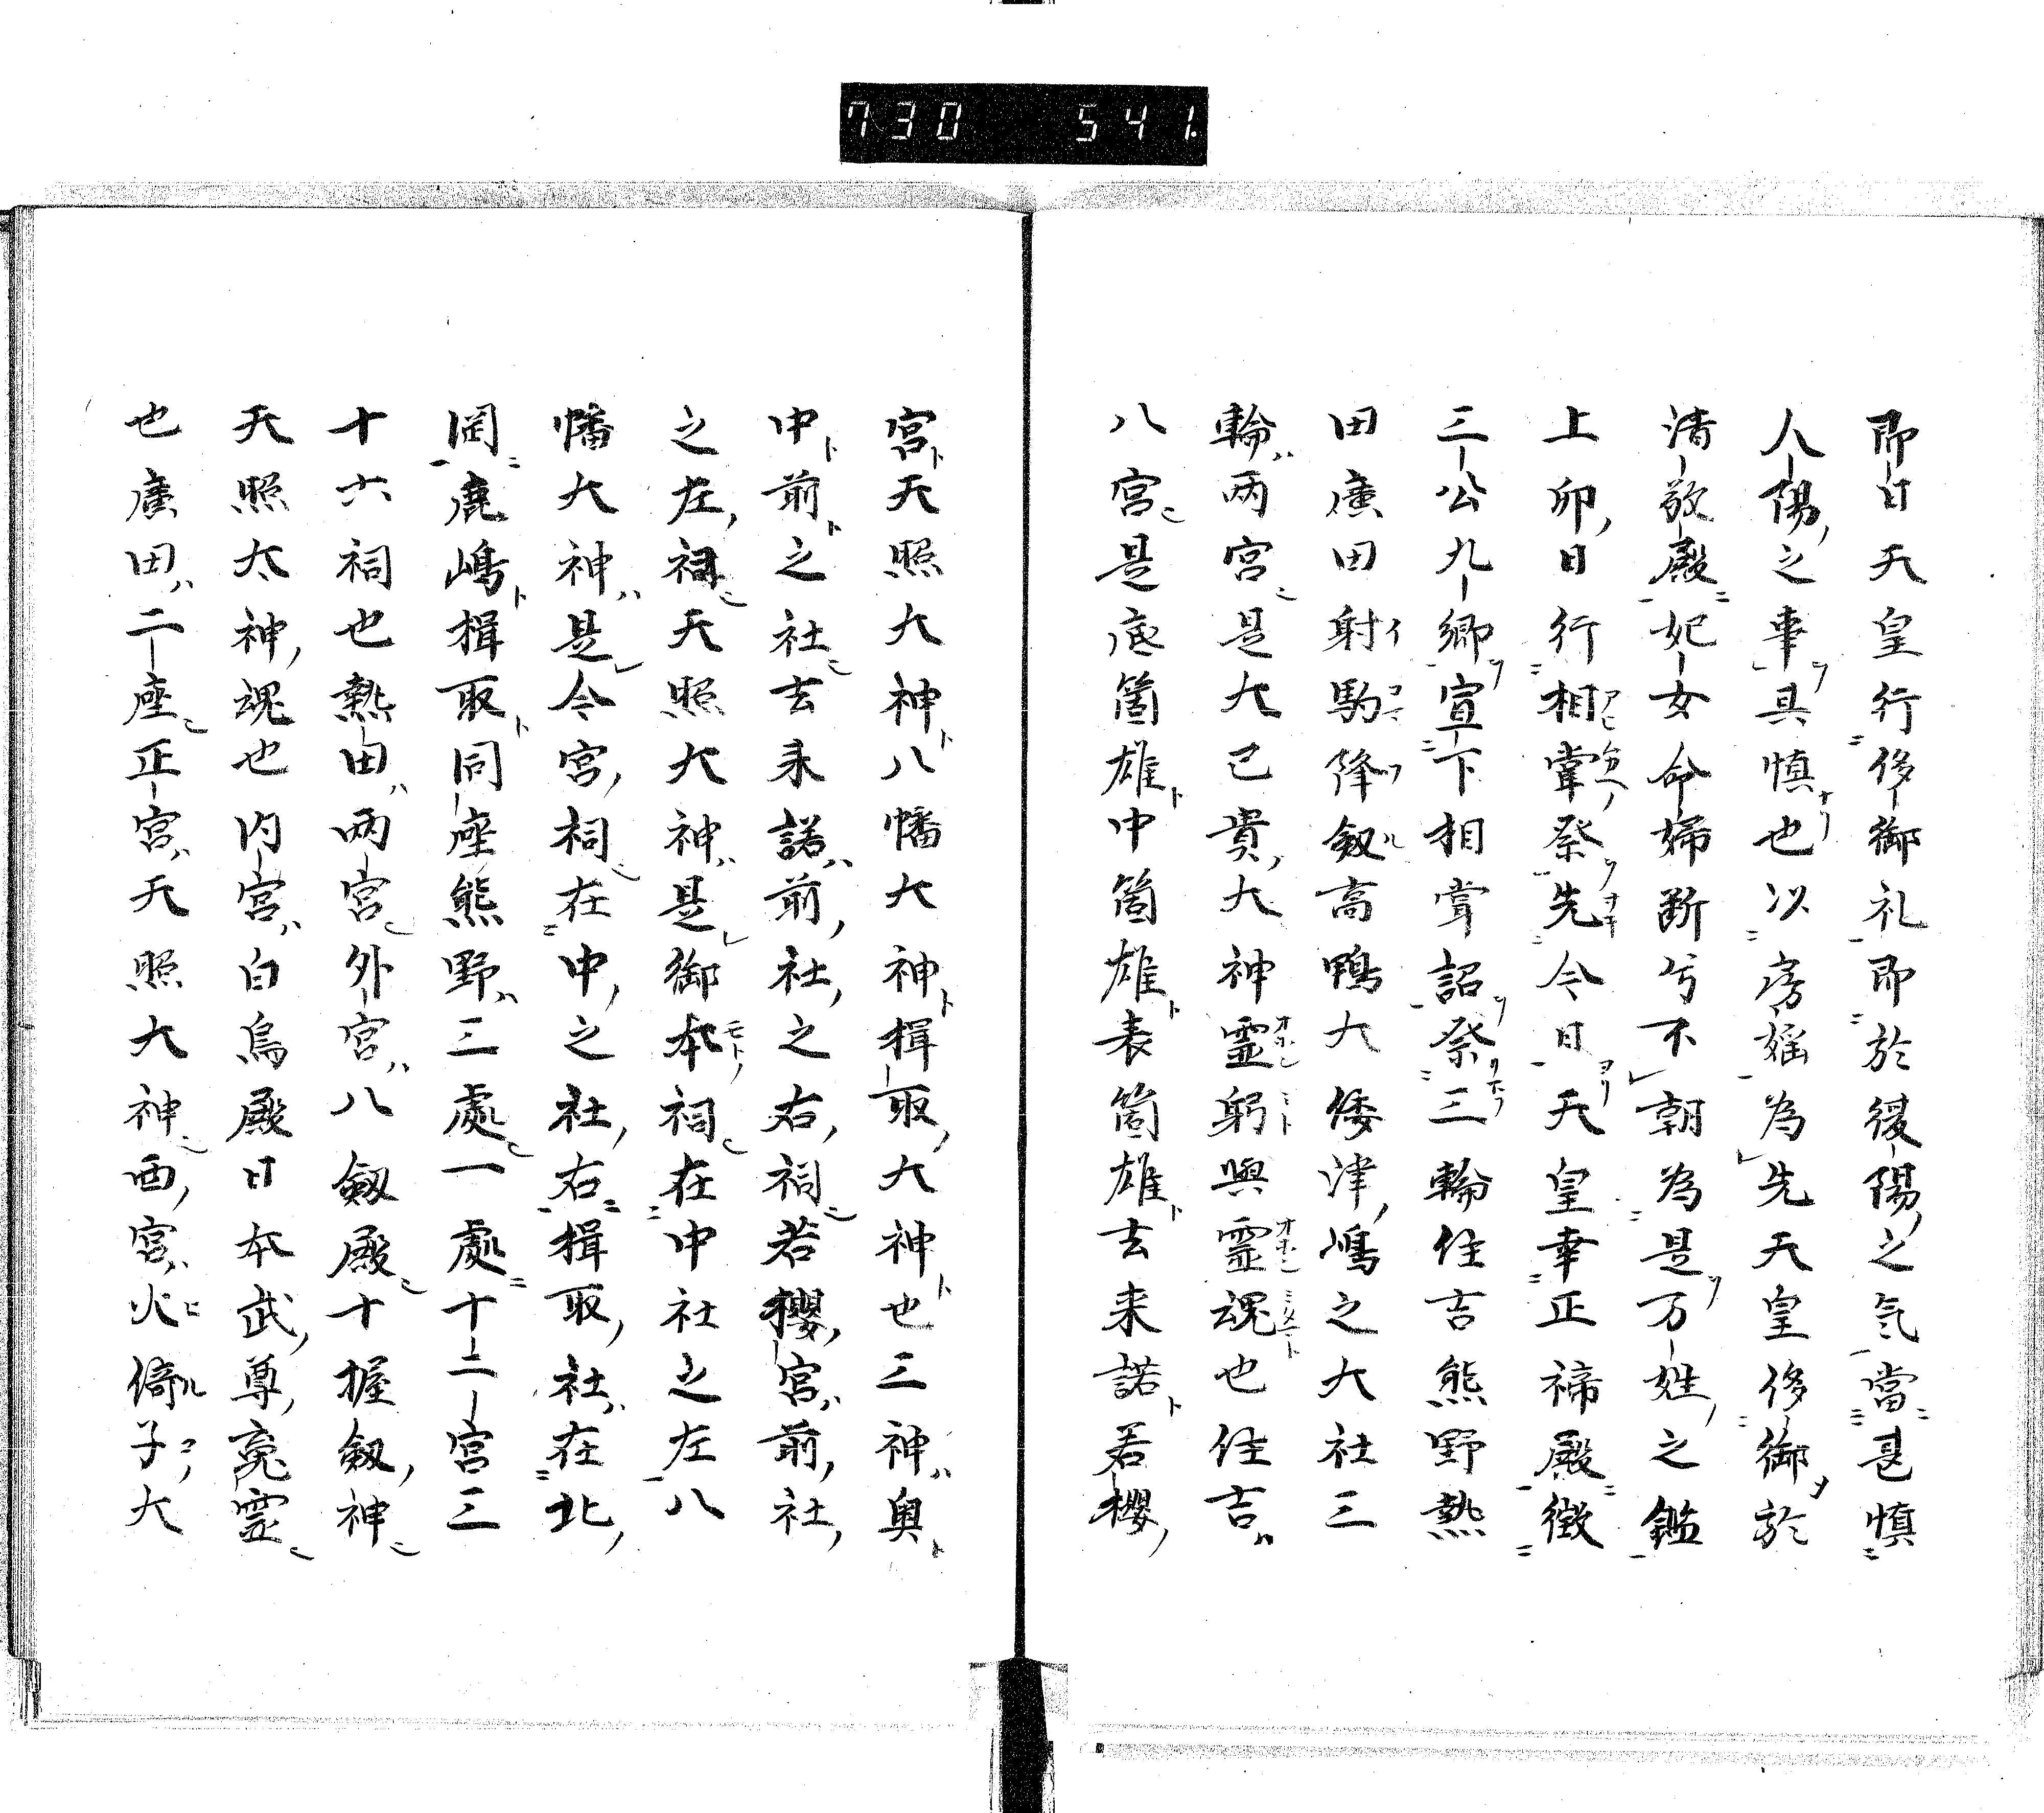 730 541.
即日天皇行侈御礼即於後陽之気當甚慎
人陽之事具慎也以房婬為先天皇侈御於
清敬殿妃女命婦断兮不朝為是万姓之鑑
上卯日行相甞祭先今日天皇幸正禘殿徴
三公九卿宣下相甞詔祭三輪住吉熊野熱
田廣田射駒降劔高鴨大倭津嶋之大社三
輪両宮是大已貴大神霊躬與霊魂也住吉
八宮是底箇雄中箇雄表箇雄去来諾若櫻
宮天照大神八幡大神揖取大神也三神奥
中前之社去来諾前社之右祠若櫻宮前社
之左祠天照大神是御本祠在中社之左八
幡大神是今宮祠在中之社右揖取社在北
罔鹿嶋揖取同座熊野三處一處十二宮三
十六祠也熱田両宮外宮八劔殿十握劔神
天照太神魂也内宮白鳥殿日本武尊寃霊
也廣田二座正宮天照大神西宮火倚子大